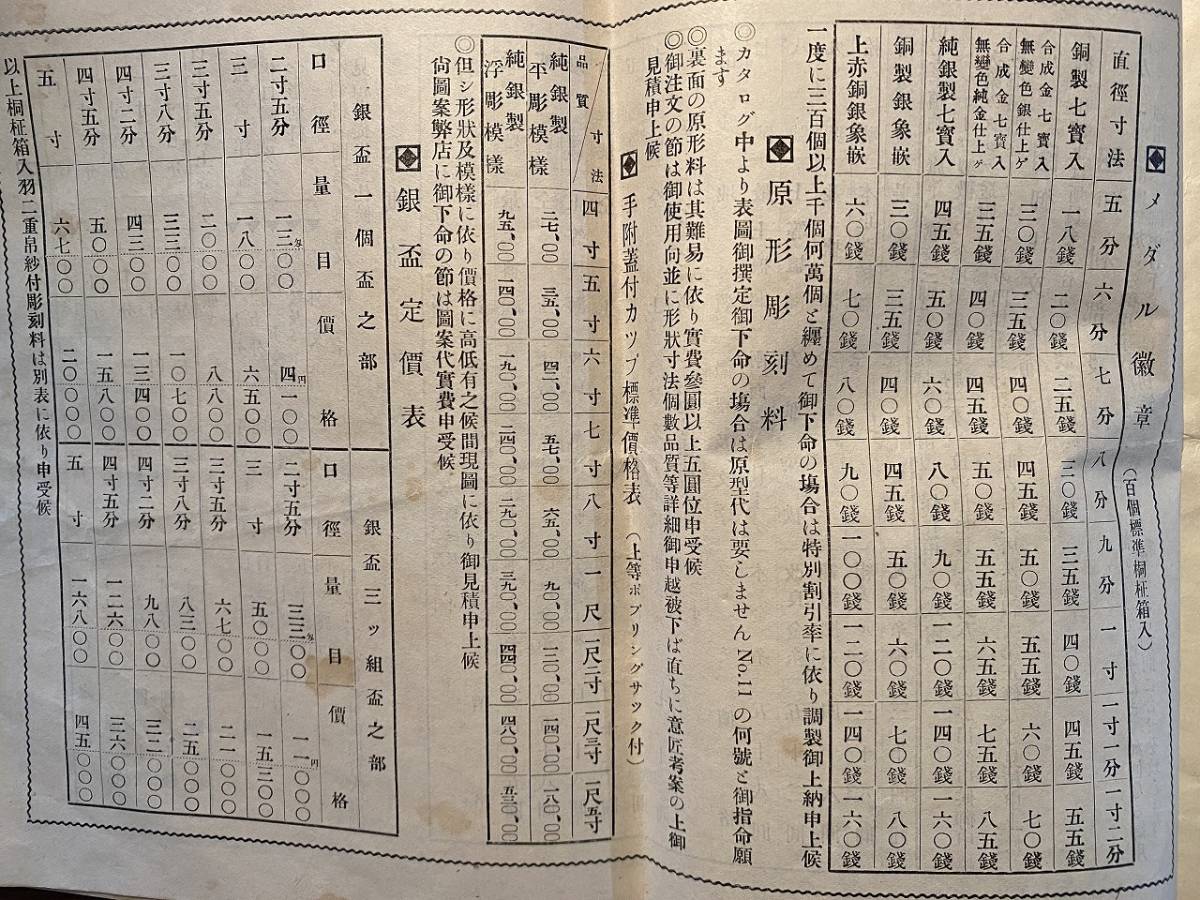 メダル徽章 (百個標準桐柾箱入)
直徑寸法 五分 六分 七分 八分 九分 一寸 一寸一分 一寸二分
銅製七寶入 一八錢 二〇錢 二五錢 三〇錢 三五錢 四〇錢 四五錢 五五錢
合成金七寶入無變色銀仕上ゲ 三〇錢 三五錢 四〇錢 四五錢 五〇錢 五五錢 六〇錢 七〇錢
合成金七寶入無變色純金仕上ゲ 三五錢 四〇錢 四五錢 五〇錢 五五錢 六五錢 七五錢 八五錢
純銀製七寶入 四五錢 五〇錢 六〇錢 八〇錢 九〇錢 一二〇錢 一四〇錢 一六〇錢
銅製銀象嵌 三〇錢 三五錢 四〇錢 四五錢 五〇錢 六〇錢 七〇錢 八〇錢
上赤銅銀象嵌 六〇錢 七〇錢 八〇錢 九〇錢 一〇〇錢 一二〇錢 一四〇錢 一六〇錢
一度に三百個以上千個何萬個と纒めて御下命の塲合は特別割引率に依り調製御上納申上候
原形彫刻料
◎カタログ中より表圖御撰定御下命の塲合は原型代は要しません No.11 の何號と御指命願
ます
◎裏面の原形料は其難易に依り實費參圓以上五圓位申受候
◎御注文の節は御使用向並に形狀寸法個數品質等詳細御申越被下ば直ちに意匠考案の上御
見積申上候
手附蓋付カツプ標準價格表 (上等ポプリングサツク付)
品質 寸法 四寸 五寸 六寸 七寸 八寸 一尺 一尺二寸 一尺三寸 一尺五寸
純銀製平彫模樣 二七、〇〇 三五、〇〇 四二、〇〇 五七、〇〇 六五、〇〇 九〇、〇〇 一二〇、〇〇 一四〇、〇〇 一八〇、〇〇
純銀製浮彫模樣 九五、〇〇 一四〇、〇〇 一九〇、〇〇 二四〇、〇〇 二九〇、〇〇 三九〇、〇〇 四四〇、〇〇 四八〇、〇〇 五三〇、〇〇
◎但シ形狀及模樣に依り價格に高低有之候間現圖に依り御見積申上候
尙圖案弊店に御下命の節は圖案代實費申受候
銀盃定價表
銀盃一個盃之部
口徑 量目 價格
二寸五分 一三匁〇〇 四円一〇〇
三寸 一八〇〇 六五〇〇
三寸五分 二〇〇〇 八八〇〇
三寸八分 三三〇〇 一〇七〇〇
四寸二分 四三〇〇 一三四〇〇
四寸五分 五〇〇〇 一五八〇〇
五寸 六七〇〇 二〇〇〇〇
銀盃三ッ組盃之部
口徑 量目 價格
二寸五分 三三匁〇〇 一一円〇〇〇
三寸 五〇〇〇 一五三〇〇
三寸五分 六七〇〇 二一〇〇〇
三寸八分 八三〇〇 二五〇〇〇
四寸二分 九八〇〇 三二〇〇〇
四寸五分 一二六〇〇 三六〇〇〇
五寸 一六八〇〇 四五〇〇〇
以上桐柾箱入羽二重帛紗付彫刻料は別表に依り申受候